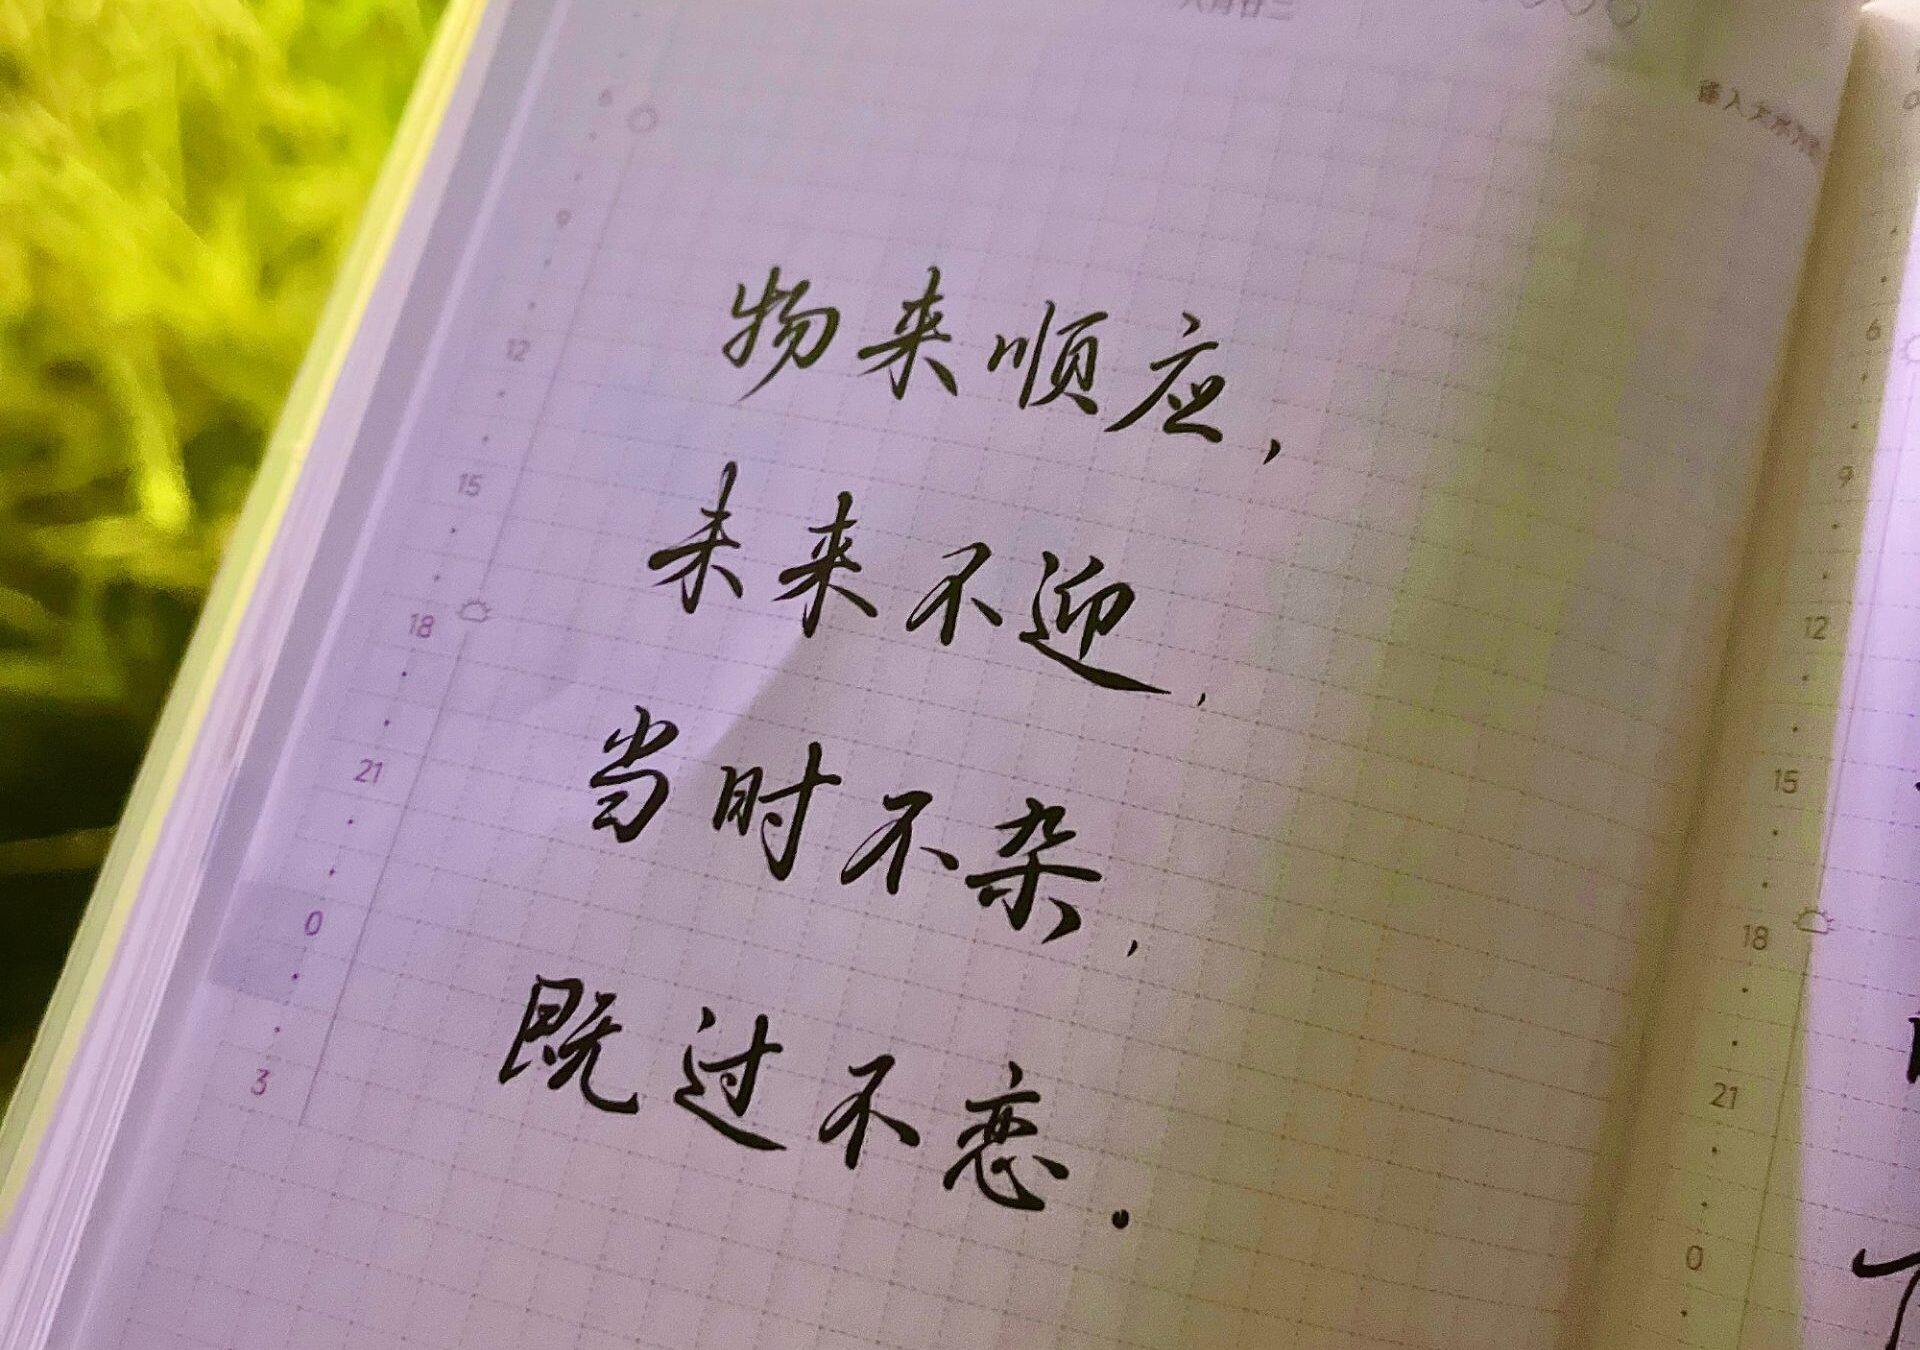 物来顺应，
未来不迎，
当时不杂，
既过不恋.
6
9
12
15
18
21
0
3
6
9
12
15
18
21
0